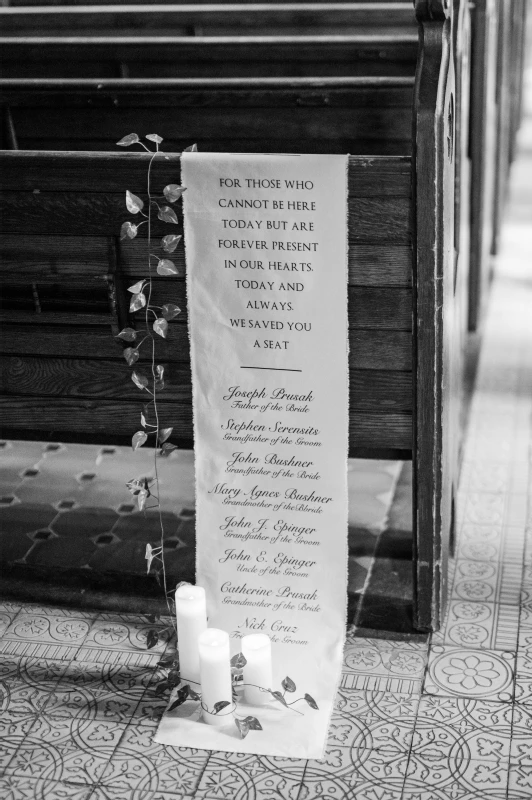 FOR THOSE WHO
CANNOT BE HERE
TODAY BUT ARE
FOREVER PRESENT
IN OUR HEARTS.
TODAY AND
ALWAYS.
WE SAVED YOU
A SEAT
Joseph Prusak
Father of the Bride
Stephen Serensits
Grandfather of the Groom
John Bushner
Grandfather of the Bride
Mary Agnes Bushner
Grandmother of theBbride
John J. Epinger
Grandfather of the Groom
John E. Epinger
Uncle of the Groom
Catherine Prusak
Grandmother of the Bride
Nick Cruz
of the Groom